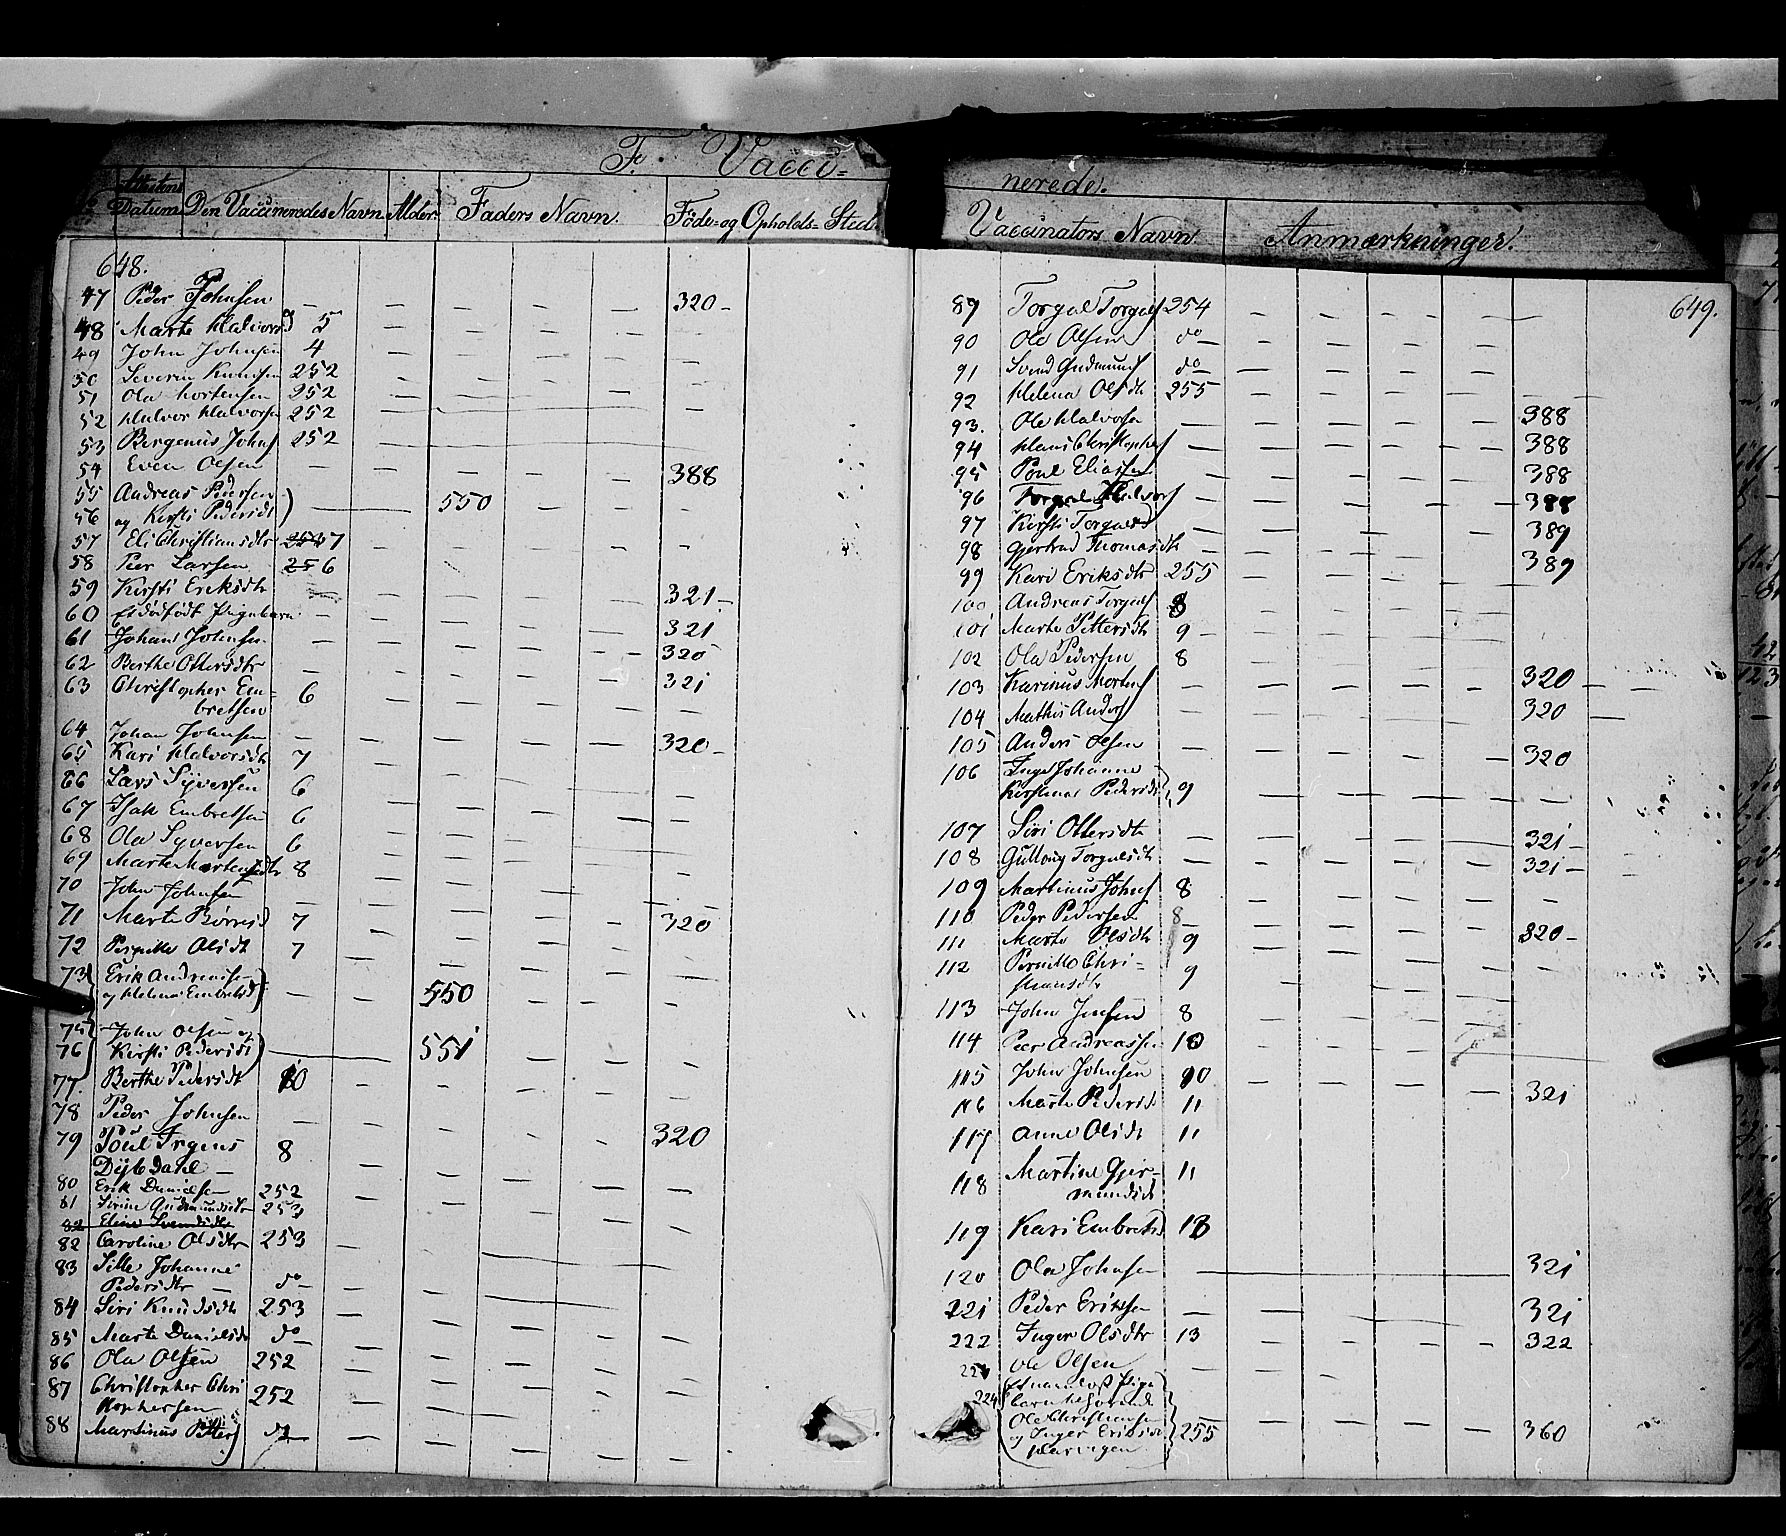 F. Vacci-
nerede.
Attestens Datum Den Vaccineredes Navn. Alder. Faders Navn. Føde- og Opholds-Sted
Vaccinators Navn Anmærkninger.
648.
47 Peder Johnsen — — — — 320 —
48 Marte Halvorsd 5 — — — — —
49 John Johnsen 4 — — — — —
50 Severin Knudsen 252 — — — — —
51 Ola Mortensen 252
52 Halvor Halvorsen 252
53 Bergenus Johns 252
54 Even Olsen — — — — — 388
55 Andreas Pedersen
56 og Kirsti Pedersdt) — 550 — — —
57 Eli Christiansdtr 7 — — — — —
58 Peer Larsen 6
59 Kirsti Eriksdtr — — — — — 321 —
60 Et dødfødt Pigebarn — — — — 321
61 Johans Johnsen — — — — — 320
62 Berthe Ottersdtr — — — — — 321
63 Christopher Em-
bretsen 6 — — — — —
64 Johan Johnsen — — — — — 320 —
65 Kari Halvorsdt 7 — — — — —
66 Lars Syversen 6 — — — — —
67 Isak Embretsen 6 — — — — —
68 Ola Syversen 6
69 Marte Mortensdtr 8 — — — — —
70 John Johnsen — — — — —
71 Marte Børresd 7 — — — — 320
72 Pernille Olsdt 7 — — — — —
73 Erik Andreassen
og Helene Embretsd) — — 550 — — —
75 John Olsen og
76 Kirsti Pedersdt) — 551 — — —
77. Berthe Pedersdt 10 — — — — —
78 Peder Johnsen — — — — — 320
79 Poul Irgens
Dybdahl — 8 — — — — —
80 Erik Danielsen 252
81 Sirine Gudmundsdtr 253
82 Eline Svendsdtr
82 Caroline Olsdtr 253 —
83 Sille Johanne
Pedersdtr — do — — — — —
84 Siri Knudsdt 253 —
85 Marte Danielsdt do — — — — —
86 Ola Olsen 252 — — — — —
87 Christopher Chri
stophersen 252 — — — — —
88 Martinus Pitters do — — — — —
649.
89 Torgal Torgals 254 — — — — —
90 Ole Olsen do — — — — —
91 Svend Gudmunds do — — — — —
92 Helena Olsdtr 255 — — — — —
93. Ole Halvorsen — — — — — 388
94 Hans Christophers — — — — — 388
95 Poul Eliassen — — — — — 388
96 Torgal Halvors — — — — — 388
97 Kirsti Torgalsd — — — — — 389
98 Gjertrud Thomasdtr — — — — — 389
99 Kari Eriksdtr 255 — — — — —
100 Andreas Torgals 8 — — — — —
101 Marte Pittersdtr 9 — — — — —
102 Ola Pedersen 8 — — — — —
103 Karinus Mortens — — — — — 320 — —
104 Mathis Anders — — — — — 320 —
105 Anders Olsen — — — — — 320
106 Inge Johanne
Kirstine Pedersdt 9 — — — — —
107 Siri Ottersdtr — — — — — 321 —
108 Gullaug Torgalsdt — — — — — 321 —
109 Martinus Johns 8 — — — — —
110 Peder Pedersen 8 — — — —
111 Marte Olsdtr 9 — — — — 320 —
112 Pernille Chri-
stiansdtr 9 — — — — —
113 John Jensen 8 — — — —
114 Peer Andreassen 10 — — —
115 John Johnsen 10 — — — —
116 Marte Pedersd 11 — 321
117 Anne Olsdt 11
118 Martine Gjer-
mundsdt 11
119 Kari Embretsd 13
120 Ola Johnsen — 321
221 Peder Eriksen — — — — — 321
222 Inger Olsdtr 13 — — — — 322
Ole Olsen —
224
Ole Christiansen
og Inger Eriksdt 255 — 360